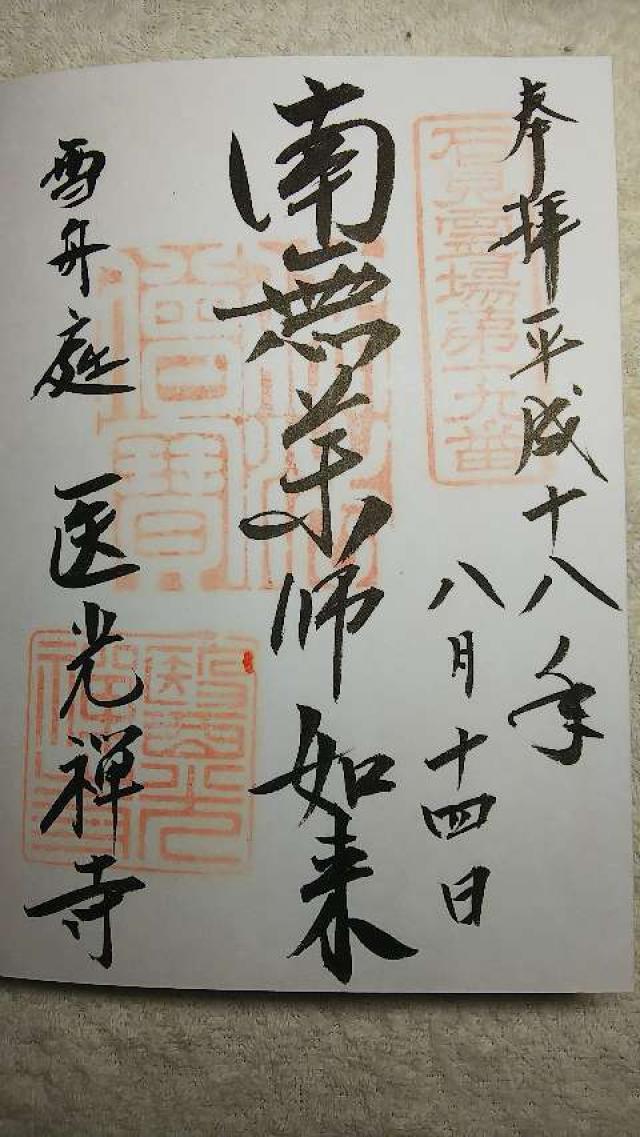 奉拝平成十八年
八月十四日
石見霊場第十九番
南無薬師如来
佛法僧寶
雪舟庭 医光禅寺
醫光禅寺